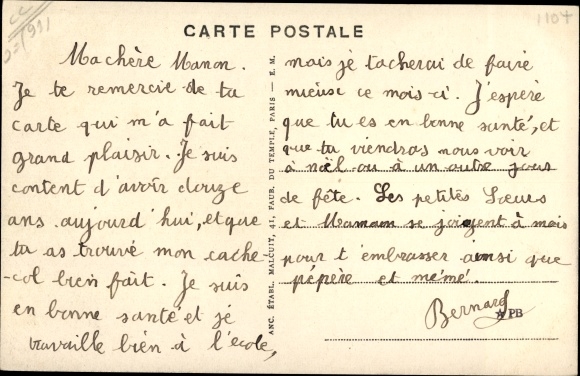 CARTE POSTALE
1107
Ma chère Manon.
Je te remercie de ta
carte qui m'a fait
grand plaisir. Je suis
content d'avoir douze
ans aujourd'hui, et que
tu as trouvé mon cache-
-col bien fait. Je suis
en bonne santé et je
travaille bien à l'école,
ANC. ÉTABL. MALCUIT, 41, FAUB. DU TEMPLE, PARIS — E. M.
mais je tacherai de faire
mieux ce mois-ci. J'espère
que tu es en bonne santé, et
que tu viendras nous voir
à nöel ou à un autre jour
de fête. Les petites Sœurs
et Maman se joignent à mois
pour t'embrasser ainsi que
pépère et mémé.
Bernard
PB